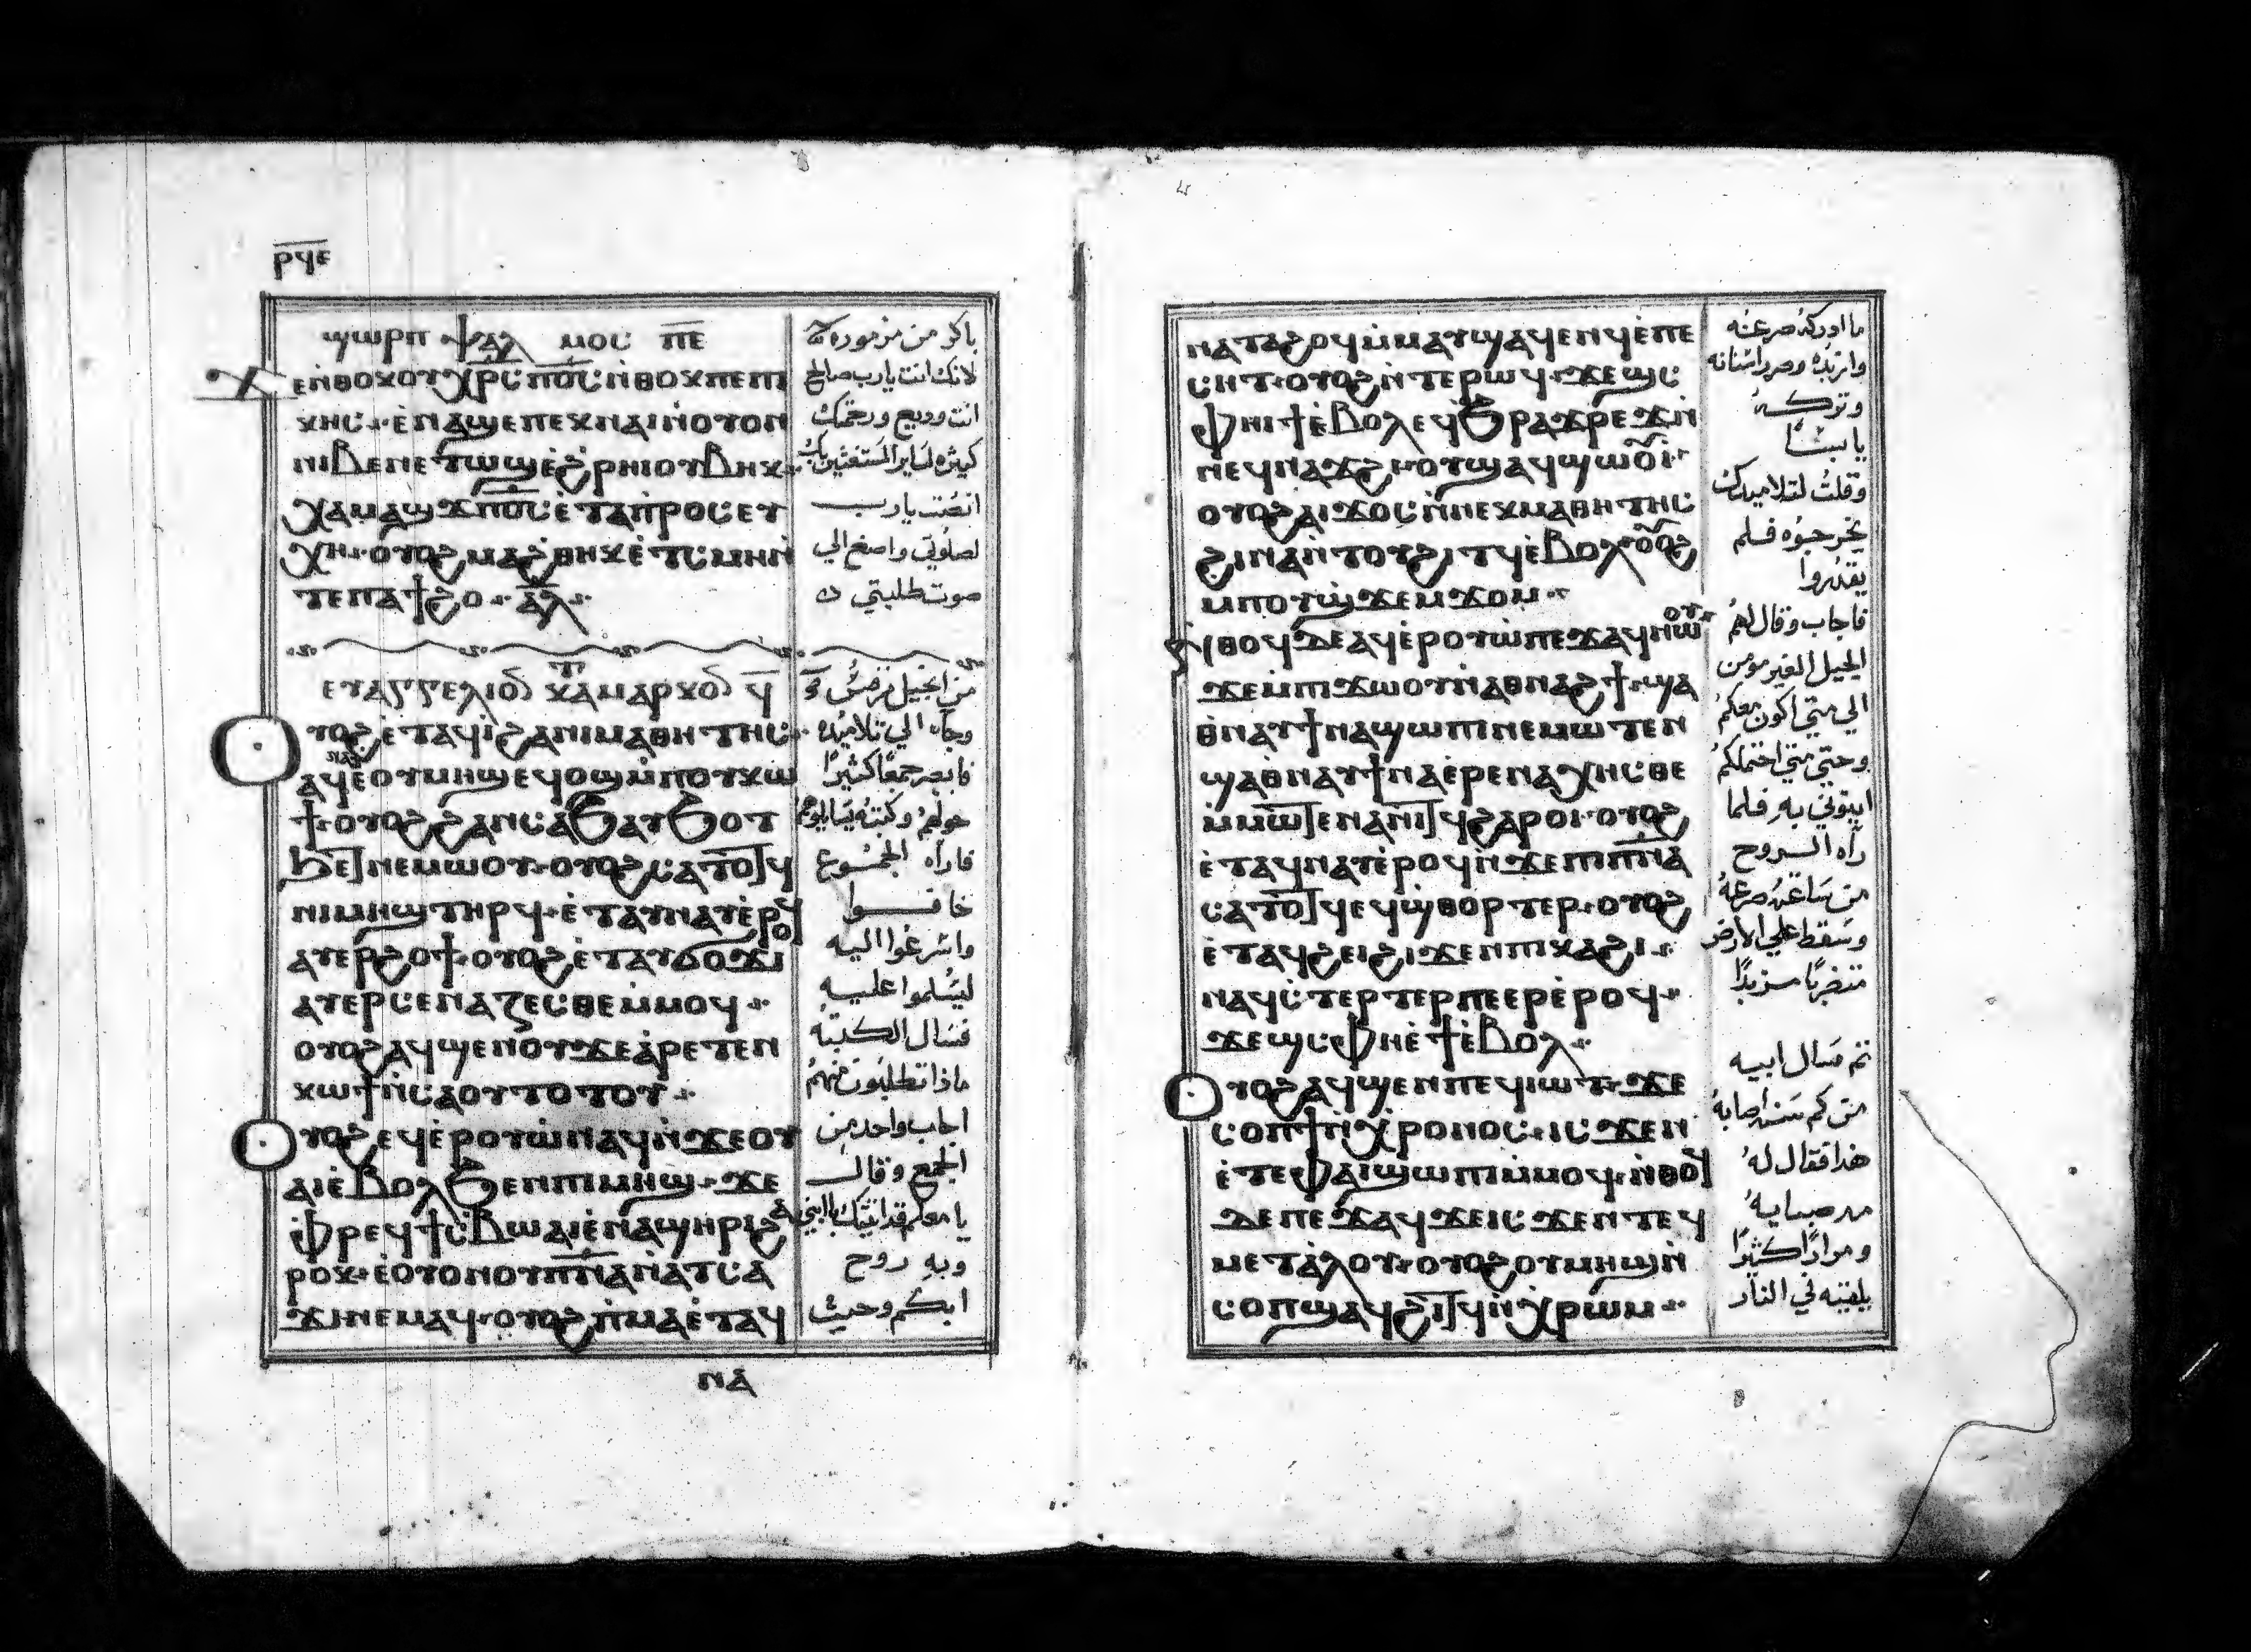 ⲣϥⲉ
ϣⲱⲣⲡ ⲯⲁⲗⲙⲟⲥ ⲡⲉ
ϫⲉⲛ̀ⲑⲟⲕ ⲟⲩⲭⲣⲥ ⲡⲟⲥ ⲛ̀ⲑⲟⲕ ⲡⲉⲡⲓ
ⲕⲏⲥ ⲉ̀ⲛⲁϣⲉ ⲡⲉⲕⲛⲁⲓ ⲛ̀ⲟⲩⲟⲛ
ⲛⲓⲃⲉⲛ ⲉⲧⲱϣ ⲉ̀ϩⲣⲏⲓ ⲟⲩⲃⲏⲕ
ϭⲓⲥⲙⲏ ⲡⲟⲥ ⲉ̀ⲧⲁⲡⲣⲟⲥⲉⲩ
ⲭⲏ ⲟⲩⲟϩ ⲙⲁϩⲑⲏⲕ ⲉ̀ⲧ̀ⲥⲙⲏ ⲛ̀
ⲧⲉⲡⲁϯϩⲟ ⲁⲗ
ⲉⲩⲁⲅⲅⲉⲗⲓⲟⲛ ⲕⲁⲧⲁ ⲙⲁⲣⲕⲟⲛ ϥ
ⲟⲩⲟϩ ⲉ̀ⲧⲁϥⲓ̀ ϩⲁⲛⲓⲙⲁⲑⲏⲧⲏⲥ
ⲁϥⲛⲁⲩ ⲉⲟⲩⲙⲏϣ ⲉϥⲟϣ ⲙ̀ⲡⲟⲩⲕⲱ
ϯ ⲟⲩⲟϩ ϩⲁⲛⲥⲁϧ ⲁⲩϧⲟⲧ
ϧⲉⲧ ⲛⲉⲙⲱⲟⲩ ⲟⲩⲟϩ ⲥⲁⲧⲟⲧϥ
ⲡⲓⲙⲏϣ ⲧⲏⲣϥ ⲉ̀ⲧⲁⲩⲛⲁⲩ ⲉ̀ⲣⲟϥ
ⲁⲩⲉⲣϩⲟϯ ⲟⲩⲟϩ ⲉ̀ⲧⲁⲩϭⲟϫⲓ
ⲁⲩⲉⲣⲥⲉⲛⲁⲍⲉⲥⲑⲉ ⲙ̀ⲙⲟϥ
ⲟⲩⲟϩ ⲁϥϣⲉⲛⲟⲩ ϫⲉ ⲁ̀ⲣⲉⲧⲉⲛ
ⲕⲱϯ ⲛ̀ⲥⲁ ⲟⲩ ⲧⲟⲧⲟⲩ
ⲟⲩⲟϩ ⲉϥⲉ̀ⲣⲟⲩⲱ̀ ⲛⲁϥ ⲛ̀ϫⲉ ⲟⲩ
ⲁⲓ ⲉ̀ⲃⲟⲗ ϧⲉⲛ ⲡⲓⲙⲏϣ ϫⲉ
ⲫⲣⲉϥϯⲥ̀ⲃⲱ ⲁⲓⲉ̀ⲛ ⲡⲁϣⲏⲣⲓ ϩⲁ
ⲣⲟⲕ ⲉ̀ⲟⲩⲟⲛ ⲟⲩⲡⲛⲁ ⲛ̀ⲁⲧⲥⲁ
ϫⲓ ⲛⲉⲙⲁϥ ⲟⲩⲟϩ ⲡ̀ⲙⲁ ⲉ̀ⲧⲁϥ
ⲛⲁ
باكر من مزمور ٥
لانك انت يا رب صالح
انت وديع ورحمتك
كثيرة لساير المستغثين بك
انصت يا رب
لصلوتي واصغ الي
صوت طلبتي
من انجيل مرقس
وجاء الي تلاميذه
فابصر جمعًا كثيرًا
حولهم وكتبه يسايلوهم
فاراه الجموع
خافوا
واسرعوا اليه
ليسلموا عليه
فسال الكتبة
ماذا تطلبون منهم
اجاب واحد من
الجمع وقال
يا معلم قد اتيتك بابني
وبه روح
ابكم وحيث
ⲛⲁⲧⲁϩⲟϥ ⲙ̀ⲙⲁⲩ ϣⲁϥⲉⲛϥ ⲉ̀ⲡⲉ
ⲥⲏⲧ ⲟⲩⲟϩ ⲛ̀ⲧⲉⲣⲱϥ ϫⲉϣⲥ
ⲫⲏⲓϯ ⲉ̀ⲃⲟⲗ ⲉϥϧⲣⲁϫⲣⲉϫ ⲛ̀
ⲛⲉϥⲛⲁϫϩⲓ ⲟⲩ ϣⲁϥϣⲱⲟⲩⲓ
ⲟⲩⲟϩ ⲁⲓϫⲟⲥ ⲛ̀ⲛⲉⲕⲙⲁⲑⲏⲧⲏⲥ
ϩⲓⲛⲁ ⲛ̀ⲧⲟⲩϩⲓⲧϥ ⲉ̀ⲃⲟⲗ ⲟⲩⲟϩ
ⲙⲡⲟⲩϣϫⲉⲙϫⲟⲙ
ⲛ̀ⲑⲟϥ ⲇⲉ ⲁϥⲉ̀ⲣⲟⲩⲱ̀ ⲡⲉϫⲁϥ ⲛⲱⲟⲩ
ϫⲉ ⲙ̀ⲡⲓϫⲱⲟⲩ ⲛ̀ⲁⲑⲛⲁϩϯ ϣⲁ
ⲑ̀ⲛⲁⲩ ϯⲛⲁϣⲱⲡⲓ ⲛⲉⲙⲱⲧⲉⲛ
ϣⲁⲑⲛⲁⲩ ϯⲛⲁⲉ̀ⲣⲉⲛⲁⲭⲏⲥⲑⲉ
ⲙ̀ⲙⲱⲧⲉⲛ ⲁⲛⲓⲧϥ ϩⲁⲣⲟⲓ ⲟⲩⲟϩ
ⲉ̀ⲧⲁϥⲛⲁⲩ ⲉ̀ⲣⲟϥ ⲛ̀ϫⲉ ⲡⲓⲡⲛⲁ
ⲥⲁⲧⲟⲧϥ ⲉϥϣ̀ⲑⲟⲣⲧⲉⲣ ⲟⲩⲟϩ
ⲉ̀ⲧⲁϥϩⲉⲓ ϩⲓϫⲉⲛ ⲡⲓⲕⲁϩⲓ
ⲛⲁϥⲥ̀ⲧⲉⲣⲧⲉⲣ ⲡⲉ ⲉⲣⲉ̀ⲣⲟϥ
ϫⲉϣⲥ ⲫⲏⲉ̀ϯ ⲉ̀ⲃⲟⲗ
ⲟⲩⲟϩ ⲁϥϣⲉⲛ ⲡⲉϥⲓⲱⲧ ϫⲉ
ⲥⲟⲡϯ ⲛ̀ⲭⲣⲟⲛⲟⲥ ⲓⲥϫⲉⲛ
ⲉ̀ⲧⲉ ⲫⲁⲓ ϣⲱⲡⲓ ⲙ̀ⲙⲟϥ ⲛ̀ⲑⲟϥ
ⲇⲉ ⲡⲉϫⲁϥ ϫⲉ ⲓⲥϫⲉⲛ ⲧⲉϥ
ⲙⲉⲧⲁ̀ⲗⲟⲩ ⲟⲩⲟϩ ⲟⲩⲙⲏϣ ⲛ̀
ⲥⲟⲡ ϣⲁϥϩⲓⲧϥ ⲛ̀ⲭⲣⲱⲙ
ما ادركه صرعه
وازبده وصر اسنانه
وتركه
يابسًا
وقلت لتلاميذك
يخرجوه فلم
يقدروا
فاجاب وقال لهم
الجيل الغير مومن
الي متي اكون معكم
وحتي متي احتملكم
ايتوني به فلما
راه الروح
من ساعته صرعه
وسقط علي الارض
متضربًا مزبدًا
ثم سال ابيه
من كم سنه اصابه
هذا فقال له
مد صبايه
ومرارًا كثيرًا
يلقيه في النار